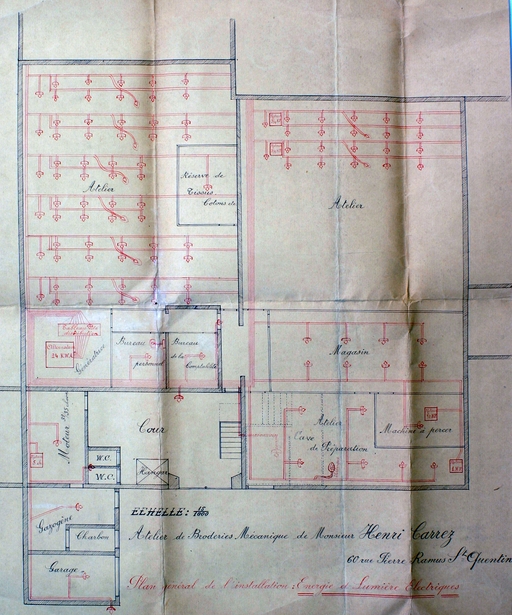 Atelier
Réserve de
Tissus
Cotons etc
Atelier
Tableau de
distribution
Alternateur
24 KWA
Génératrice
Bureau du
personnel
Bureau
de la
Comptabilité
Magasin
Moteur
Cour
W.C.
W.C.
Hangar
Atelier
Cave
de Préparation
Machine à percer
Gazogène
Charbon
Garage
ECHELLE:
Atelier de Broderies Mécanique de Monsieur Henri Carrez
60 rue Pierre Ramus St Quentin
Plan général de l'installation: Energie et Lumière Electriques